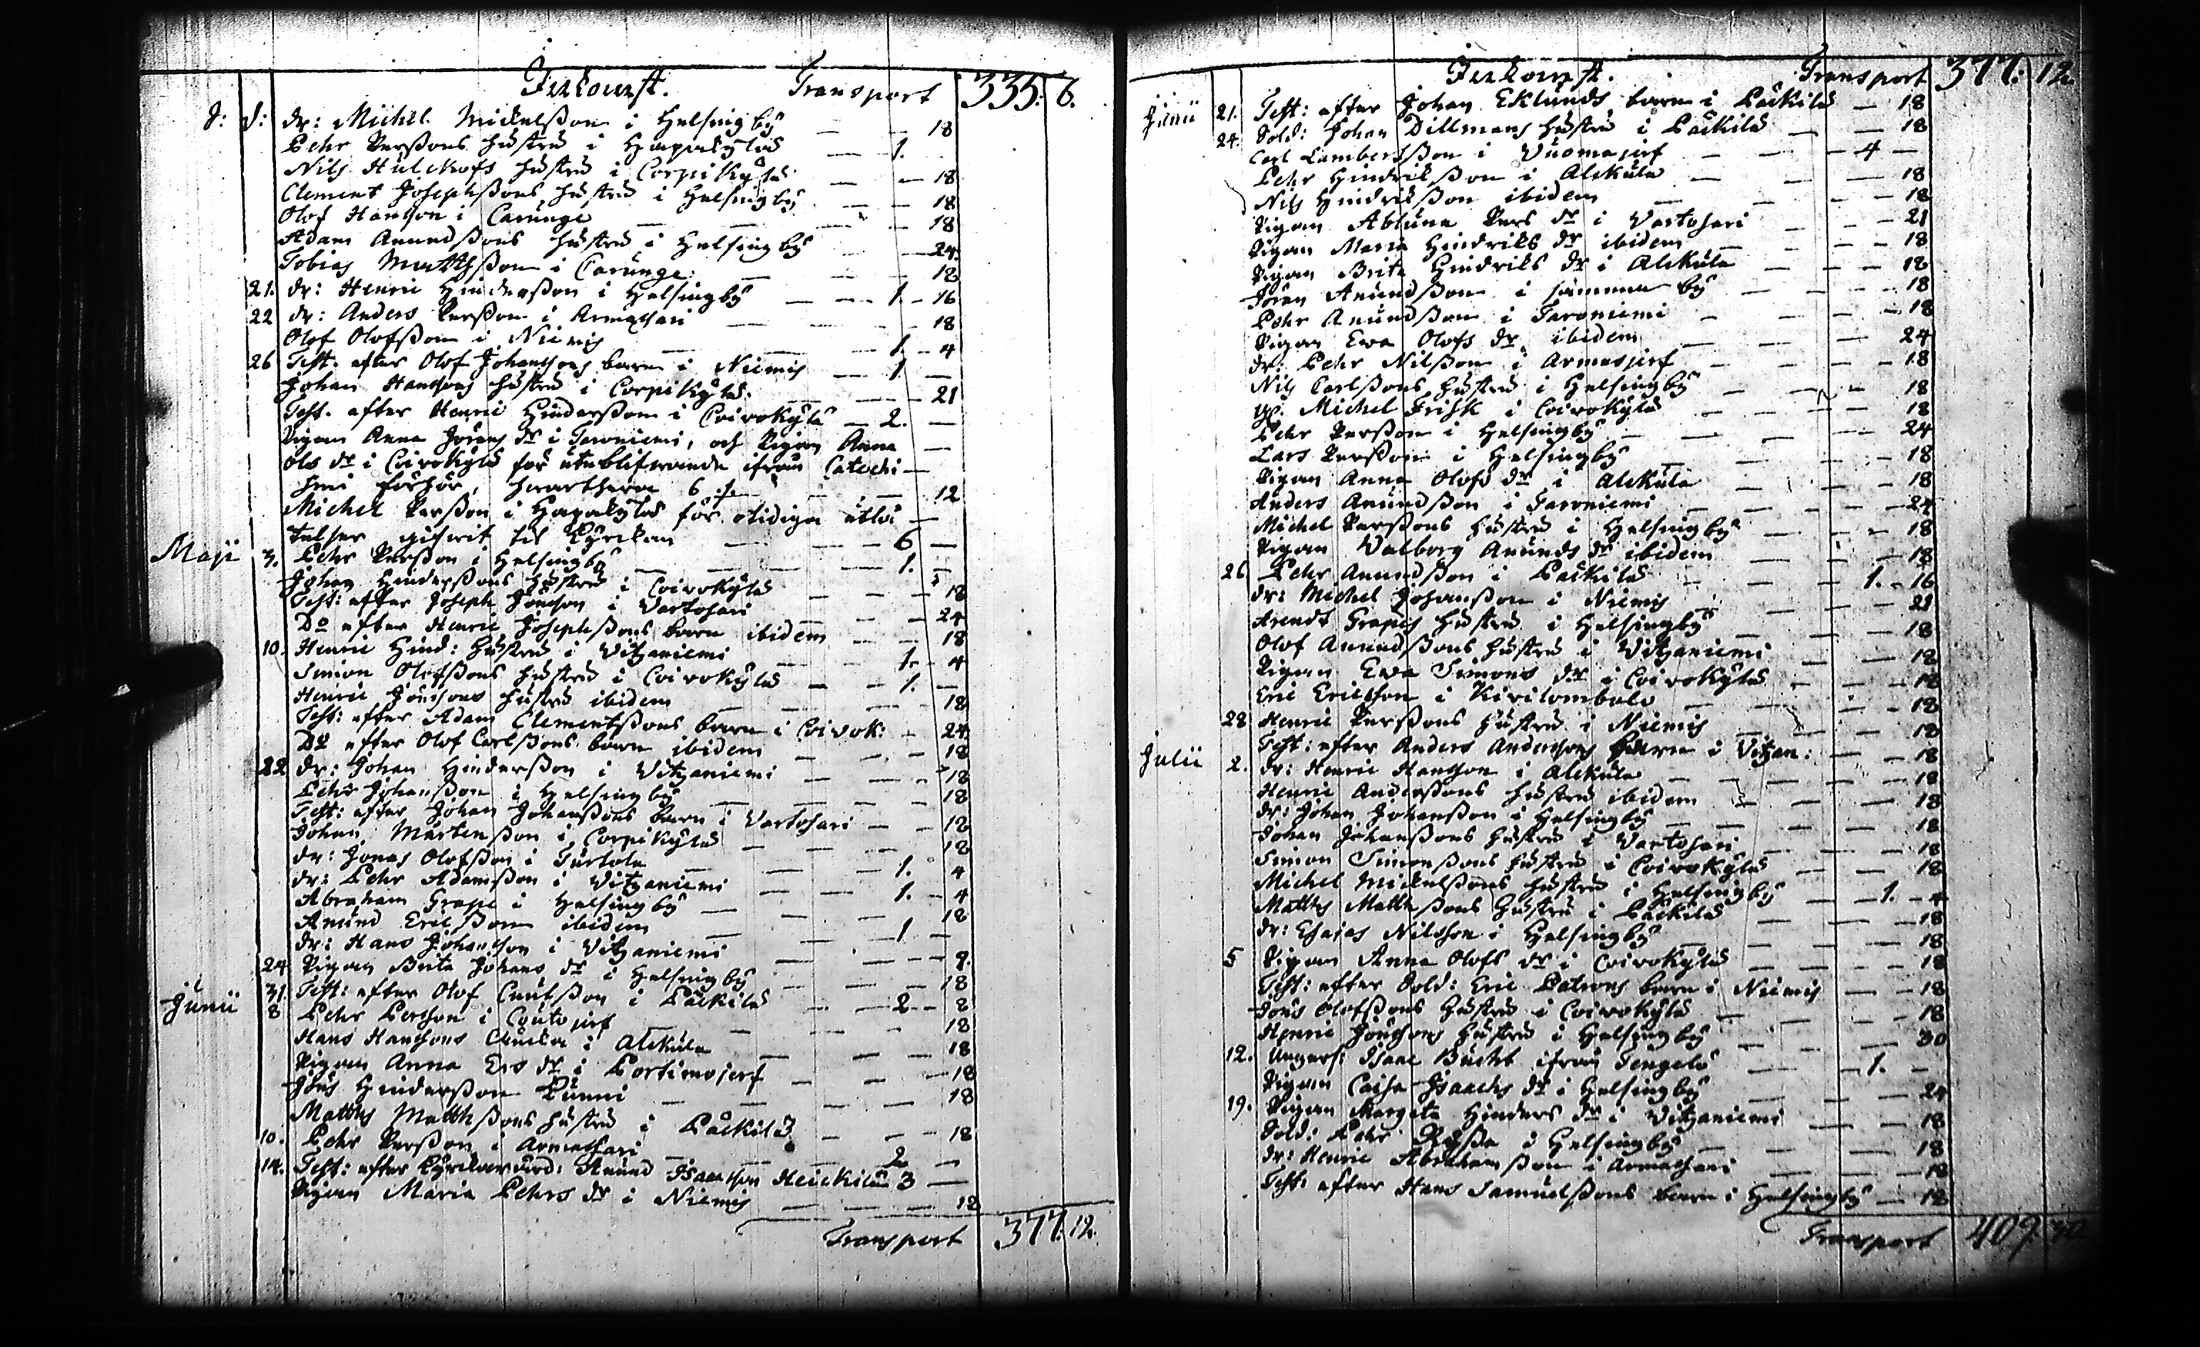 Inkomst. Transport 335: 6.
d: d: dr: Michel Mickelsson i Helsingby — — 18
Pehr Perssons hustru i Haapakylä — 1.
Nils Hulckofs hustru i Corpikylä — — 18
Clement Josephssons hustru i Helsingby — 18
Olof Hansson i Carunge — — 18
Adam Anundssons hustru i Helsingby — 24.
Tobias Matthsson i Carunge — — 18
21. dr: Henric Hindersson i Helsingby — — 1 - 16
22 dr: Anders Persson i Armassari — — 18
Olof Olofsson i Niemis — — 1. - 4
26 Test. efter Olof Johanssons barn i Niemis — 1 —
Johan Hanssons hustru i Corpikylä. — — 21
Test. efter Henric Hindersson i Coivokylä — 2. —
Pigan Anna Jörans dr i Taroniemi, och Pigan Anna —
Ols dr i Coivokylä för uteblifwande ifrån Catechi —
smi förhör, hwarthera 6 s — — 12
Michel Persson i Haapakylä för otidiga utlå —
telser gifwit til Kyrkan — — 6 —
Maji 3. Pehr Persson i Helsingby — — 1. —
Johan Hinderssons hustru i Coivokylä — — 18
Test: efter Joseph Jönsson i Vartosari — — 24
Do efter Henric Josephssons barn ibidem — — 18
10. Henric Hind: hustru i Vitzaniemi — — 1. - 4
Simon Olofssons hustru i Coivokylä — — 1. —
Henric Jönssons hustru ibidem — — 18
Test: efter Adam Clementssons barn i Coivok: — 24
Do efter Olof Carlssons barn ibidem — — 18
22 dr: Johan Hindersson i Vitzaniemi — — 18
Pehr Johansson i Helsingby — — 18
Test: efter Johan Johanssons barn i Vartosari — — 12
Johan Mårtensson i Corpikylä — — 18
dr: Jonas Olofsson i Turtola — — 1. 4
dr: Pehr Adamsson i Vitzaniemi — — 1. - 4
Abraham Grape i Helsingby — — 18
Anund Ericsson ibidem — — 1 —
dr: Hans Johansson i Vitzaniemi — — 9.
24 Pigan Brita Johans dr i Helsingby — — 18
31 Test: efter Olof Cnutsson i Päckilä — 2 — 8
Junii 8 Pehr Persson i Coutojerf — — 18
Hans Hanssons Änka i Alckula — — 18
Pigan Anna Ers dr i Portimojerf — — 18
Jöns Hindersson Punni — — 18
Matths Matthssons hustru i Päckilä — — 18
10. Pehr Persson i Armassari — — 2 —
14. Test: efter Kyrkowärd: Anund Isacsson Heickilä 3 —
Pigan Maria Pehrs dr i Niemis — — 12
Transport 377. 12.
Inkomst. Transport 377: 12.
Junii 21. Test: efter Johan Eklunds barn i Päckilä — 18
24. Sold: Johan Dillmans hustru i Päckilä — — 18
Carl Lambertsson i Vuomajerf — — 4 —
Pehr Hindriksson i Alckula — — 18
Nils Hindriksson ibidem — — 18
Pigan Abluna Pers dr i Vartosari — — 21
Pigan Maria Hindriks dr ibidem — — 18
Pigan Brita Hindriks dr i Alckula — — 18
Jöran Anundsson i samma by — — 18
Pehr Anundsson i Taroniemi — — 18
Pigan Ewa Olofs dr ibidem — — 24
dr: Pehr Nilsson i Armasjerf — — 18
Nils Carlssons hustru i Helsingby — — 18
Michel Frisk i Coivokylä — — 18
Pehr Persson i Helsingby — — 24
Lars Persson i Helsingby — — 18
Pigan Anna Olofs dr i Alckula — — 18
Anders Anundsson i Taroniemi — — 24
Michel Perssons hustru i Helsingby — — 18
Pigan Walborg Anunds dr ibidem — — 18
26 Pehr Anundsson i Päckilä — — 1. - 16
dr: Michel Johansson i Niemis — — 21
Arendt Grapes hustru i Helsingby — — 18
Olof Anundssons hustru i Vitzaniemi — — 18
Pigan Ewa Simons dr i Coivokylä — — 18
Eric Ericsson i Kirilombolo — — 18
28 Henric Perssons hustru i Niemis — — 18
Test: efter Anders Anderssons barn i Vitzan: — 18
Julii 2. dr: Henric Hansson i Alckula — — 18
Henric Anderssons hustru ibidem — — 18
dr: Johan Johansson i Helsingby — — 18
Johan Johanssons hustru i Vartosari — — 18
Simon Simonssons hustru i Coivokylä — — 18
Michel Mickelssons hustru i Helsingby — 1. - 4
Matths Matthssons hustru i Päckilä — — 18
dr: Esaias Nilsson i Helsingby — — 18
5 Pigan Anna Olofs dr i Coivokylä — — 18
Test: efter Sold: Eric Patrons barn i Niemis — — 18
Jöns Olofssons hustru i Coivokylä — — 18
Henric Jönssons hustru i Helsingby — — 30
12. Ungersf: Isaac Bucht ifrån Tengelö — — 1. —
Pigan Caisa Isaacks dr i Helsingby — — 24
19. Pigan Margeta Hinders dr i Vitzaniemi — — 18
Sold: Pehr i Helsingby — — 18
dr: Henric Abrahamsson i Armassari — — 18
Test: efter Hans Samuelssons barn i Helsingby — 12
Transport 409. 30.